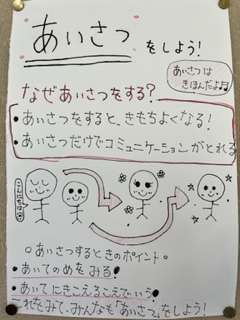 あいさつ をしよう!
あいさつは
きほんだよ♫
なぜあいさつをする?
・あいさつをすると、きもちよくなる!
・あいさつだけでコミュニケーションがとれる
こんにちは
○あいさつするときのポイント
・あいてのめをみる!
・あいてにきこえるこえでいう!
これをみて、みんなも「あいさつ」をしよう!